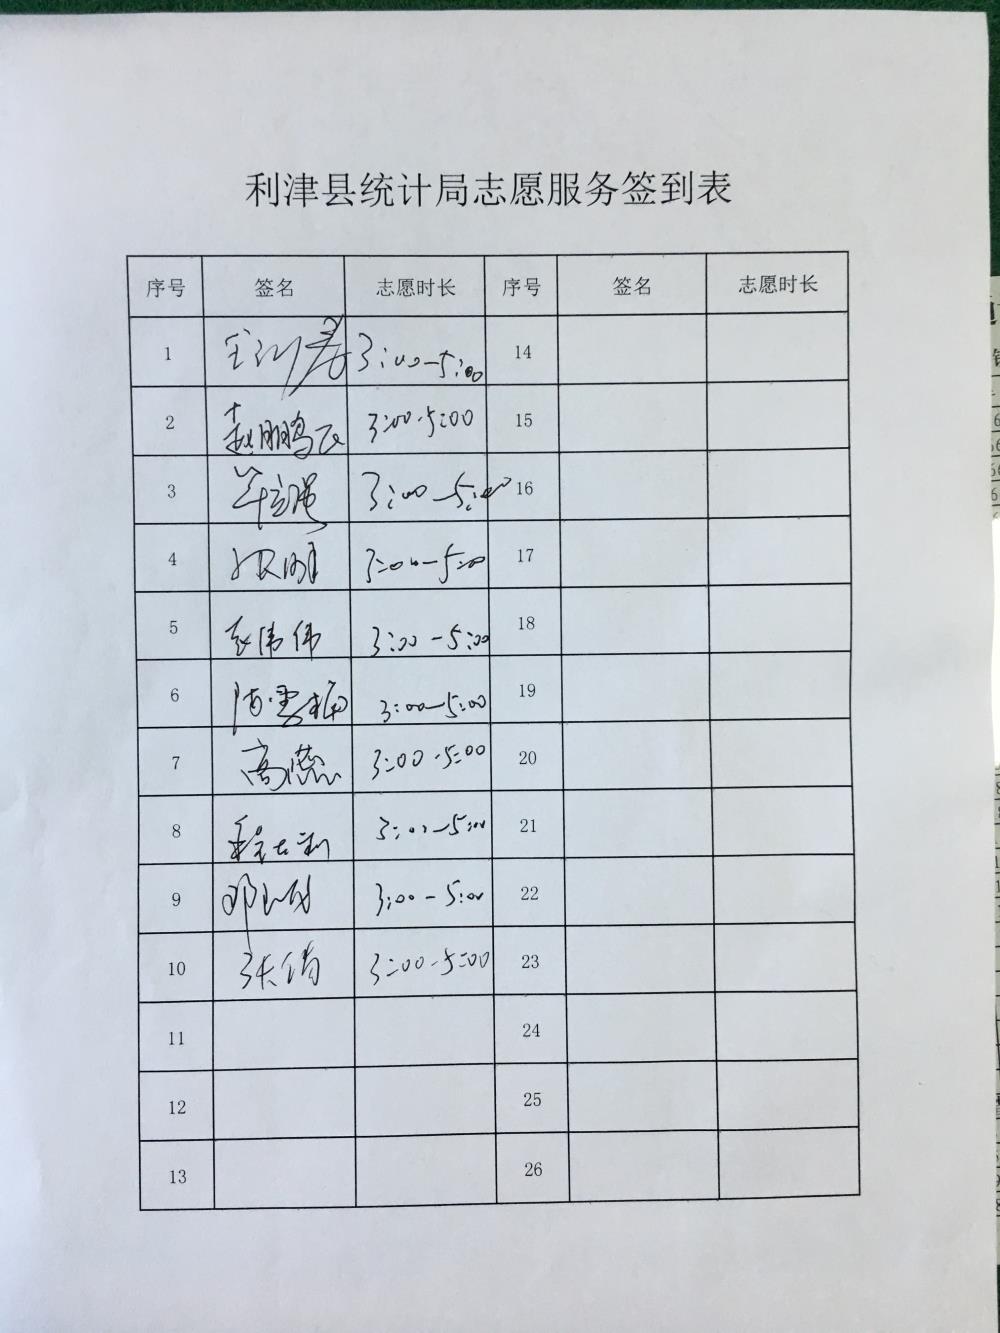 利津县统计局志愿服务签到表
序号 签名 志愿时长 序号 签名 志愿时长
1 3:00-5:00 14
2 赵鹏飞 3:00-5:00 15
3 3:00-5:00 16
4 3:00-5:00 17
5 赵伟伟 3:00-5:00 18
6 陈雪梅 3:00-5:00 19
7 高蕊 3:00-5:00 20
8 3:00-5:00 21
9 3:00-5:00 22
10 张倩 3:00-5:00 23
11 24
12 25
13 26